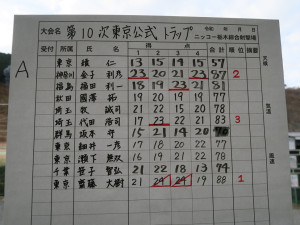 大会名 第10次東京公式トラップ 令和 年 月 日
ニッコー栃木綜合射撃場
受付 所属 氏名 得点 合計 順位 摘要
1 2 3 4
A 東京 仁 13 15 14 15 57
神奈川 金子 利彦 23 20 21 23 87 2
福島 福田 利一 18 19 23 21 81
秋田 國澤 拓 19 20 19 19 77
埼玉 牧 誠司 21 22 15 20 78
埼玉 代田 浩司 17 23 22 21 83 3
群馬 坂本 守 15 21 14 20 70
東京 細井 一彦 17 18 20 22 77
東京 瀬下 兼双 16 19 21 22 78
千葉 笹子 智弘 21 22 18 13 74
東京 齋藤 大樹 21 24 24 19 88 1